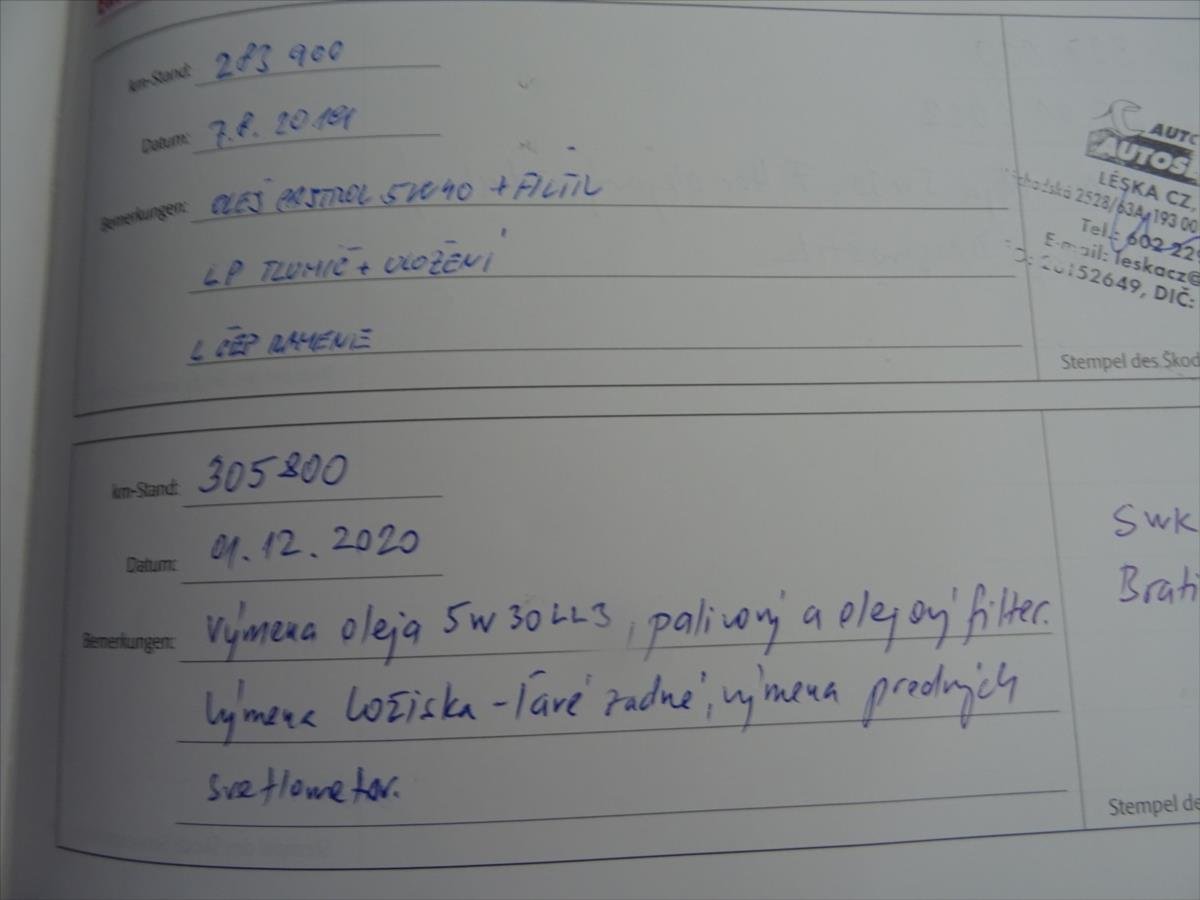 km-Stand: 283 900
Datum: 7.8. 2019
Bemerkungen: OLEJ CASTROL 5W40 + FILTR
LP TLUMIČ + ULOŽENÍ
L ČEP RAMENE
AUTO
AUTOS
LÉSKA CZ,
2528/63A, 193 00
Tel.: 602 229
E-mail: leskacz@
152649, DIČ:
Stempel des Škod
km-Stand: 305800
Datum: 01.12.2020
Bemerkungen: Výmena oleja 5W30LL3, palivový a olejový filter.
Výmena ložiska - ľavé zadné, výmena predných
svetlometov.
SWK
Brati
Stempel de